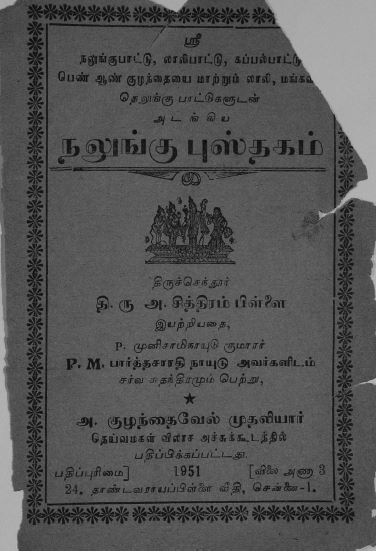 ஸ்ரீ
நலுங்குபாட்டு, லாலிபாட்டு, கப்பல்பாட்டு
பெண் ஆண் குழந்தையை மாற்றும் லாலி, மங்கள
தெலுங்கு பாட்டுகளுடன்
அடங்கிய
நலுங்கு புஸ்தகம்
திருச்செந்தூர்
தி. ரு அ. சித்திரம் பிள்ளை
இயற்றியதை,
P. முனிசாமிநாயுடு குமாரர்
P. M. பார்த்தசாரதி நாயுடு அவர்களிடம்
சர்வ சுதந்திரமும் பெற்று,
★
அ. குழந்தைவேல் முதலியார்
தெய்வமகள் விலாச அச்சுக்கூடத்தில்
பதிப்பிக்கப்பட்டது.
பதிப்புரிமை] 1951 [விலை அணா 3
24. தாண்டவராயப்பிள்ளை வீதி, சென்னை-1.